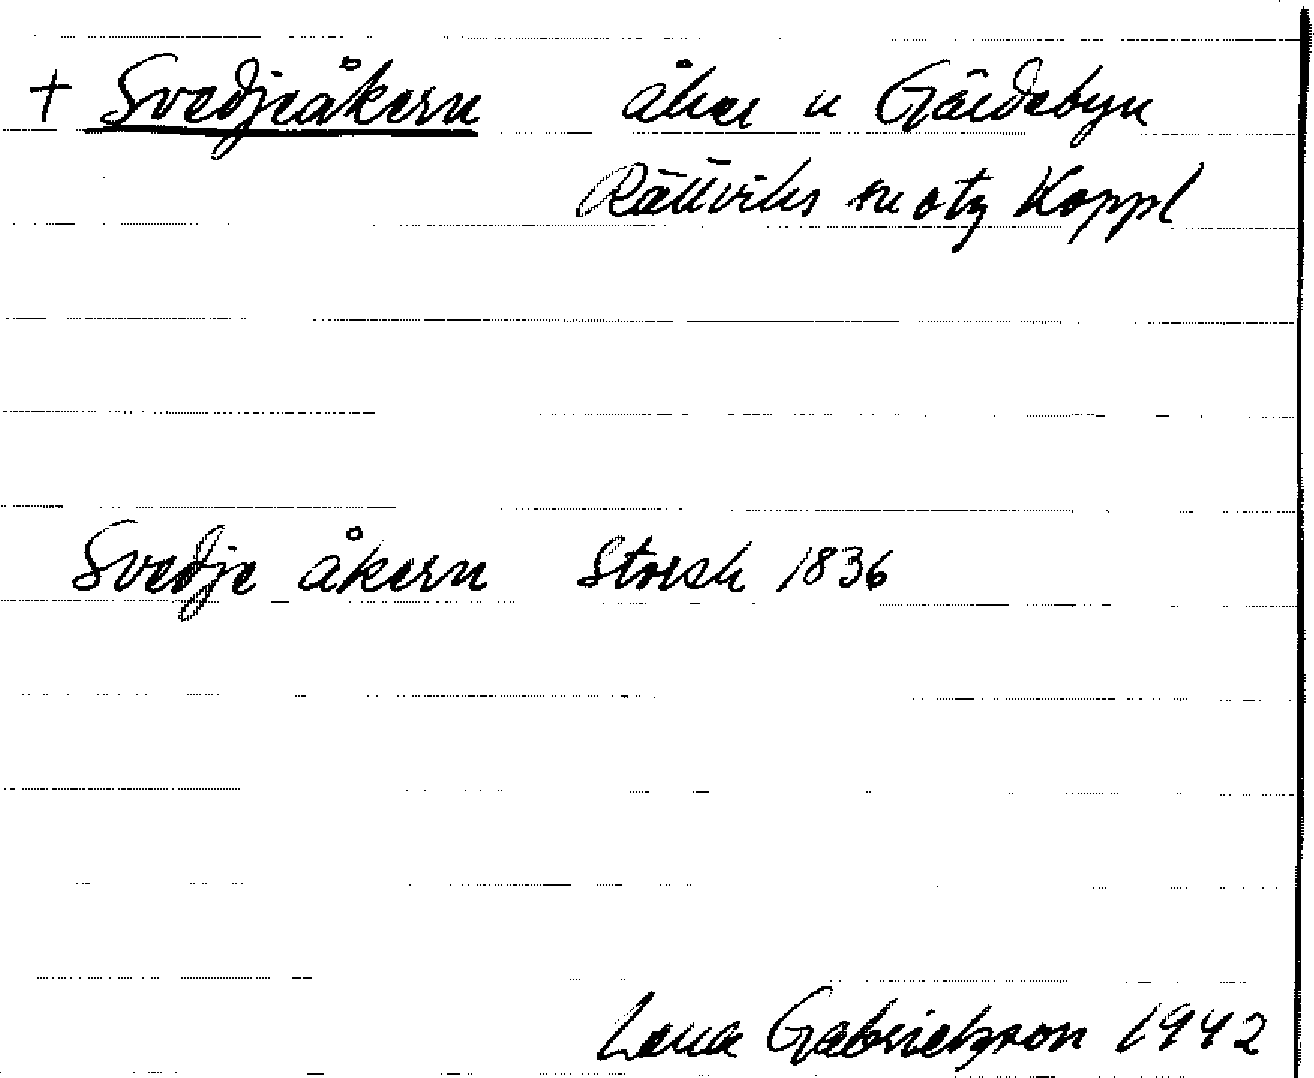 + Svedjeåkern åker u Gärdebyn
Rättviks sn o tg Koppl
Svedje åkern Storsk 1836
Lena Gabrielsson 1942